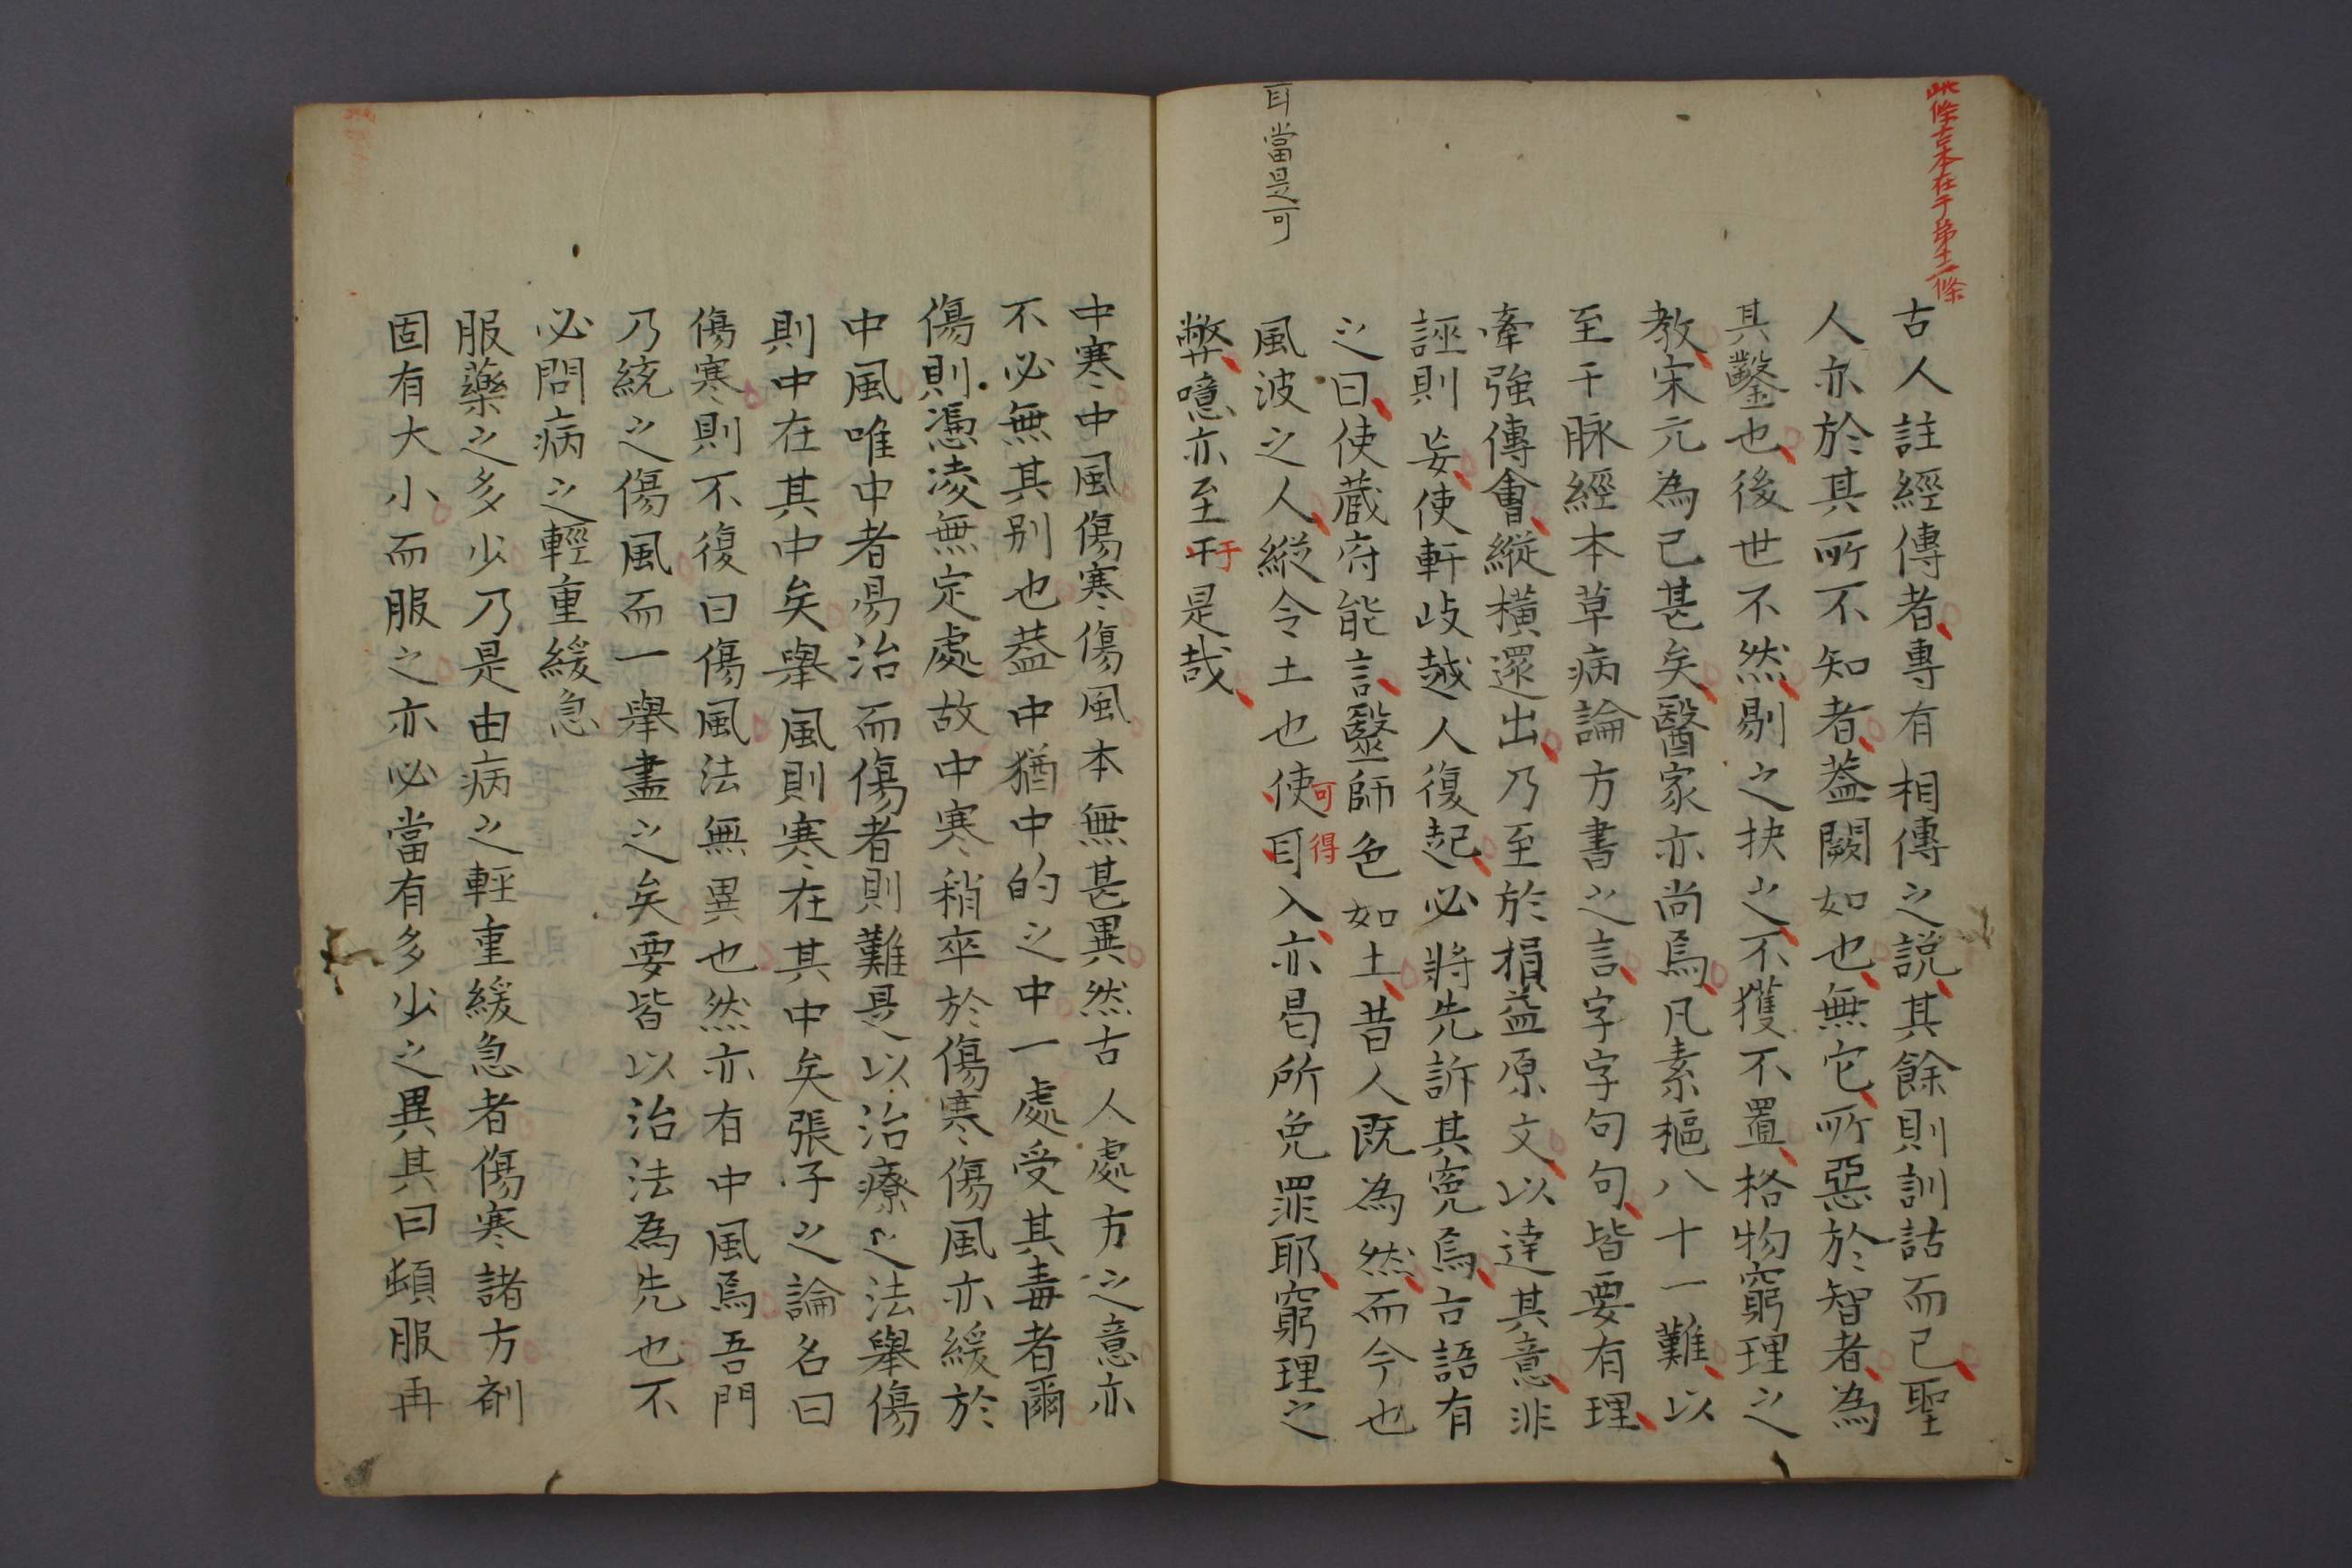 此條吉本在于第十二條
古人註經傳者專有相傳之說其餘則訓詁而已聖
人亦於其所不知者蓋闕如也無它所惡於智者為
其鑿也後世不然剔之抉之不獲不置格物窮理之
教宋元為已甚矣醫家亦尚焉凡素樞八十一難以
至干脉經本草病論方書之言字字句句皆要有理
牽強傳會縱橫還出乃至於損益原文以達其意非
誣則妄使軒歧越人復起必將先訴其寃焉古語有
之曰使藏府能言毉師色如土昔人既為然而今也
耳當是可
風波之人縱令土也使耳入亦曷所免罪耶窮理之
可得
弊噫亦至干是哉
于
中寒中風傷寒傷風本無甚異然古人處方之意亦
不必無其別也葢中猶中的之中一處受其毒者爾
傷則憑凌無定處故中寒稍卒於傷寒傷風亦緩於
中風唯中者易治而傷者則難是以治療之法舉傷
則中在其中矣舉風則寒在其中矣張子之論名曰
傷寒則不復曰傷風法無異也然亦有中風焉吾門
乃統之傷風而一舉盡之矣要皆以治法為先也不
必問病之輕重緩急
服藥之多少乃是由病之輕重緩急者傷寒諸方劑
固有大小而服之亦必當有多少之異其曰頻服再